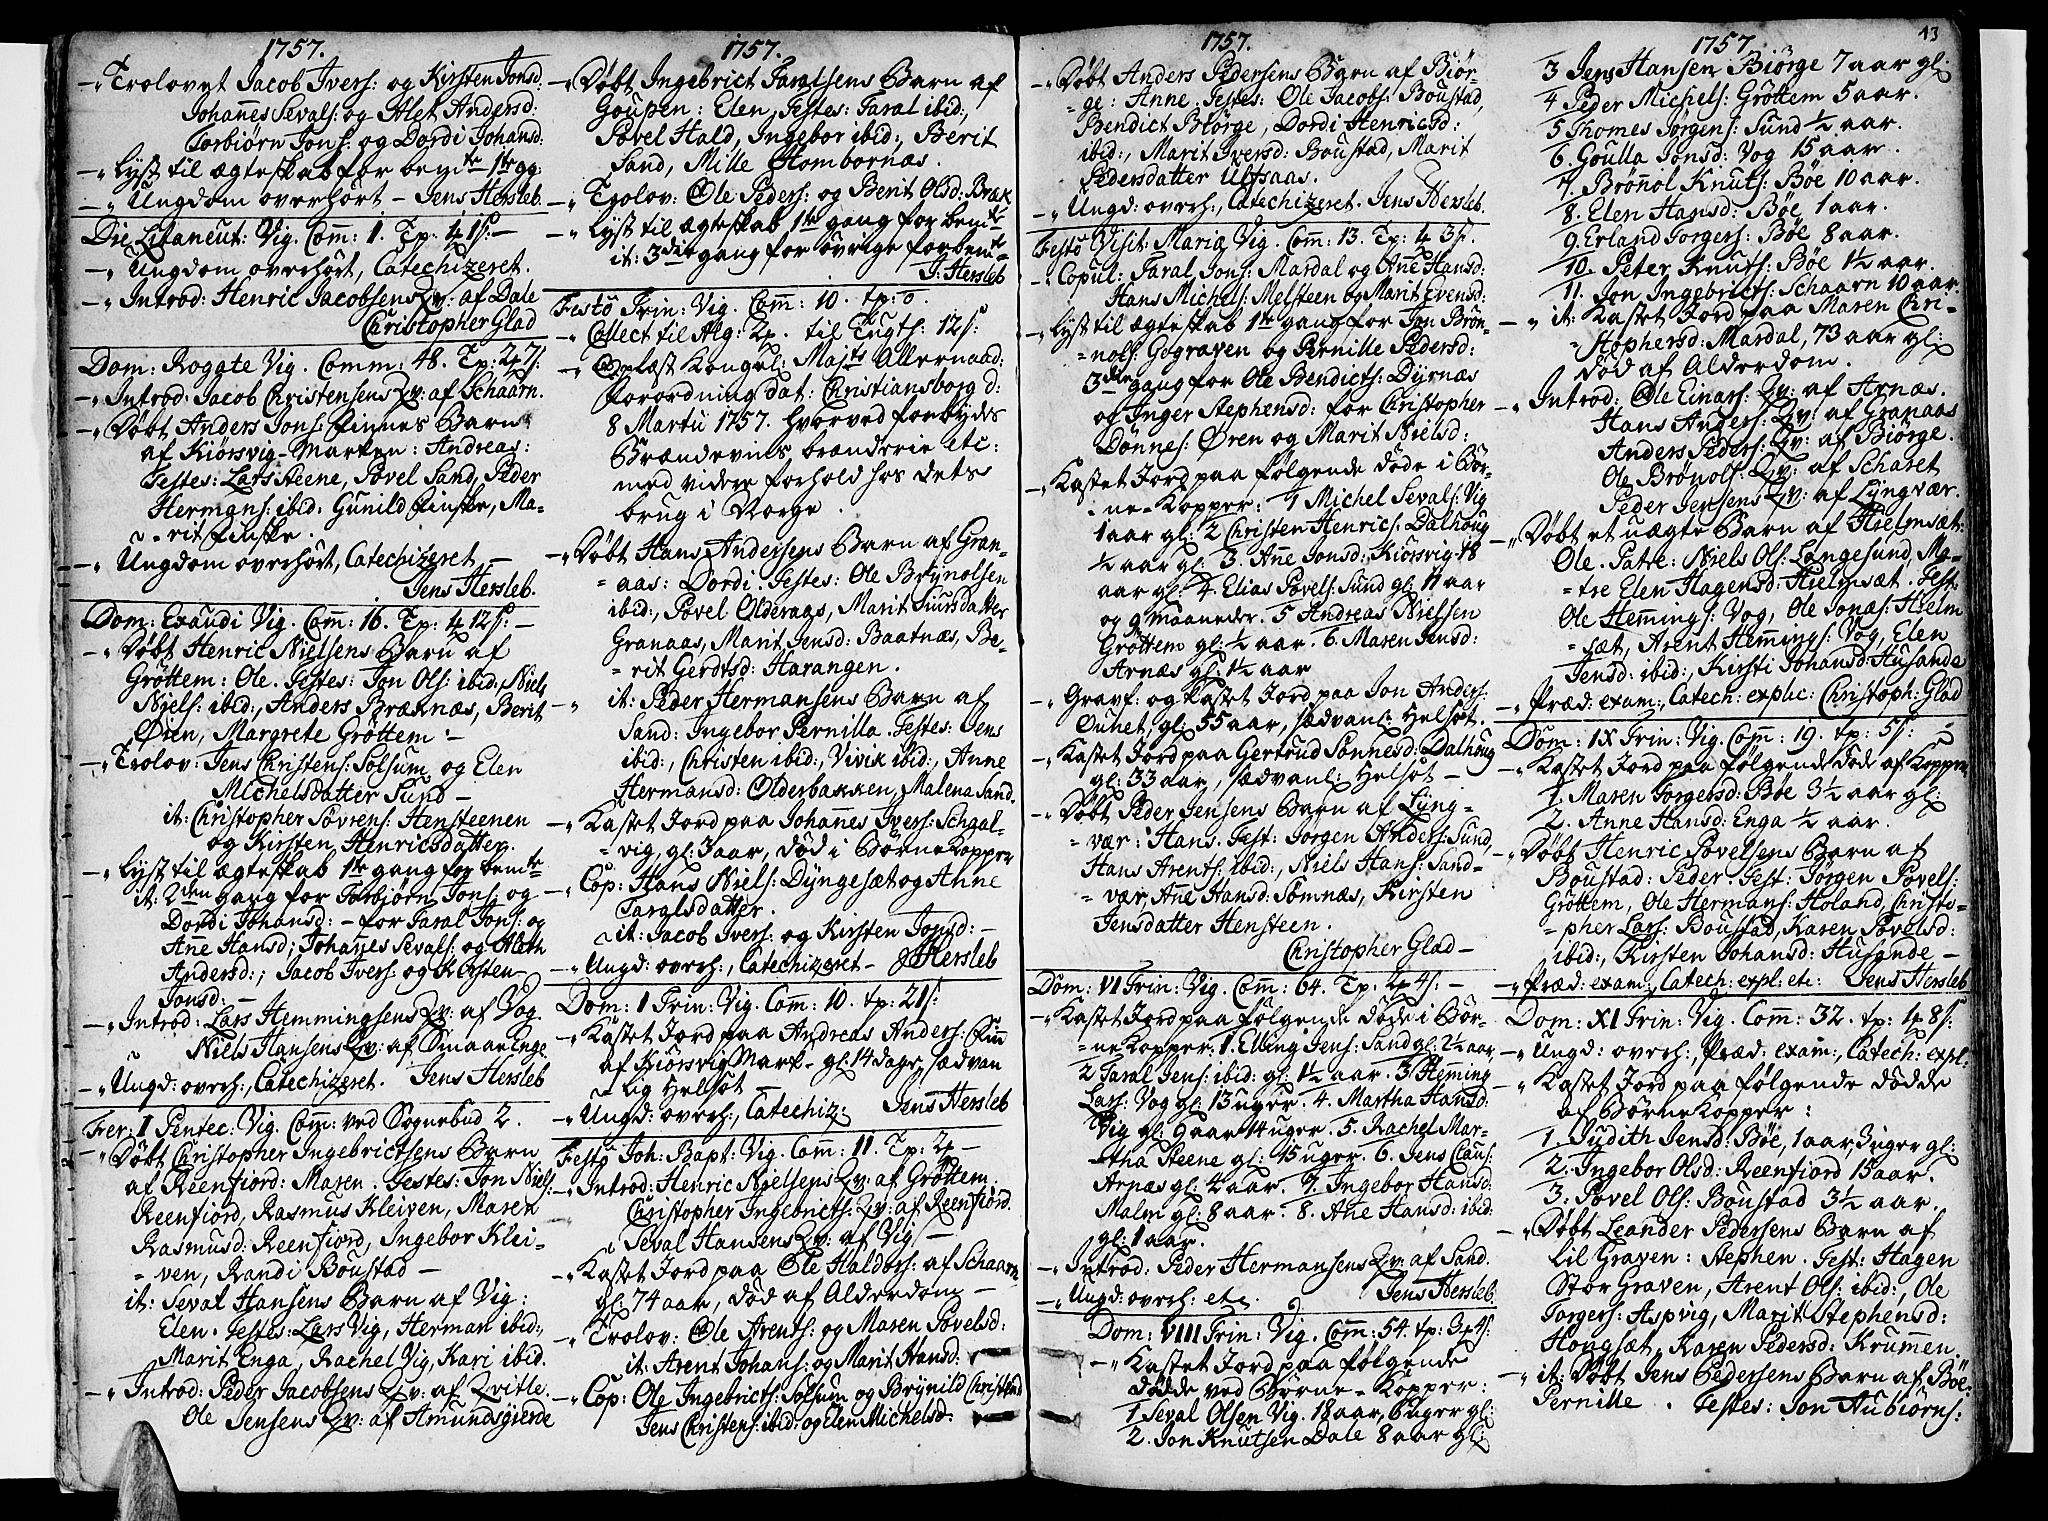 1757.
-" Trolovet Jacob Ivers: og Kirsten Jonsd:
Johannes Sevals: og Alet Andersd:
Torbiørn Jons: og Dordi Johansd:
-" Lyst til ægteskab for bemte 1ste gg:
-" Ungdom overhørt - Jens Hersleb.
Die Litaneut: Vig. Com: 1. Tp: 4 1s: -
-" Ungdom overhørt, Catechizeret.
-" Introd: Henric Jacobsens Qv: af Dale
Christopher Glad
Dom: Rogate Vig. Comm: 48. Tp: 2p 7s:
-" Introd: Jacob Christensens Qv: af Schaarn.
-" Døbt Anders Jons: Finnes Barn
af Kiörsvig-Marken: Andreas:
Testes: Lars Steene, Povel Sand, Peder
Hermans: ibid: Gunild Finske, Ma-
rit Finske.
-" Ungdom overhørt, Catechizeret. -
Jens Hersleb.
Dom: Exaudi Vig. Com: 16. Tp: 4 12s: -
-" Døbt Henric Nielsens Barn af
Grøttem: Ole. Testes: Jon Ols: ibid:, Niels
Niels: ibid:, Anders Bræknæs, Berit
Øien, Margrete Grøttem: -
-" Trolov: Jens Christens: Solsum og Elen
Michelsdatter Sund -
it: Christopher Sövrens: Hensteenen
og Kirsten Henricsdatter.
-" Lyst til ægteskab 1te gang for bemte
it: 2den gang for Torbjørn Jons: og
Dordi Johansd: - for Taral Jons: og
Ane Hansd:, Johanes Sevals: og Aleth
Andersd:, Jacob Ivers: og Kirsten
Jonsd: -
-" Introd: Lars Hemmingsens Qv: af Vog.
Niels Hansens Qv: af Smaae Enge
-" Ungd: overh:, Catechizeret. Jens Hersleb
Fer: I Pentec: Vig. Com: ved Sognebud 2.
-" Døbt Christopher Ingebrictsens Barn
af Reenfiord: Maren. Testes: Jon Niels:
Reenfiord, Rasmus Kleiven, Maren
Rasmusd: Reenfiord, Ingebor Klei-
ven, Randi Boustad -
it: Seval Hansens Barn af Vig:
Elen. Testes: Lars Vig, Herman ibid:,
Marit Enga, Rachel Vig, Kari ibid.
-" Introd: Peder Jacobsens Qv: af Qvitle.
Ole Jensens Qv: af Amundsgierde
1757.
-" Døbt Ingebrict Taralsens Barn af
Goupen: Elen, Testes: Taral ibid:,
Povel Hald, Ingebor ibid:, Berit
Sand, Mille Hombornæs.
-" Trolov: Ole Peders: og Berit Olsd: Bræk
-" Lyst til ægteskab 1te gang for bemte
it: 3die gang for övrige forbemte
J: Hersleb
Festo Trin: Vig. Com: 10. tp: 0.
-" Collect til Alg: 2p. til Tugts: 12s:
-" Oplæst Kongel: Majts Allernaad:
forordning dat: Christiansborg d:
8 Martii 1757. hvorved forbydes
Brændeviins brænderie etc:
med videre forhold hos dets
brug i Norge.
-" Døbt Hans Andersens Barn af Gran-
aas: Dordi. Testes: Ole Brynolsen
ibid:, Povel Olderaas, Marit Siursdatter
Granaas, Marit Jensd: Baatnæs, Be-
rit Gerdtsd: Harangen.
-" it: Peder Hermansens Barn af
Sand: Ingebor Pernilla. Testes: Jens
ibid:, Christen ibid:, Vivik ibid:, Anne
Hermansd: Olderbakken, Malena Sand.
-" Kastet Jord paa Johannes Ivers: Schgal-
vig, gl: 3 aar, död i Børne Kopper
-" Cop: Hans Niels: Dyngesæt og Anne
Taralsdatter.
it: Jacob Ivers: og Kirsten Jonsd: -
-" Ungd: overh:, Catechizeret - J Hersleb
Dom: I Trin: Vig. Com: 10. tp: 21s:
-" Kastet Jord paa Andreas Anders: Fin
af Kiörsvig Mark - gl: 14 dage, sædvan
lig Helsöt -
-" Ungd: overh:, Catechiz: Jens Hersleb
Festo Joh: Bapt: Vig. Com: 11. Tp: 2p -
-" Introd: Henric Nielsens Qv: af Grøttem.
Christopher Ingebricts: Qv: af Reenfiord.
Seval Hansens Qv: af Vig -
-" Kastet Jord paa Ole Haldors: af Schaarn
gl: 74 aar, död af Alderdom -
-" Trolov: Ole Arents: og Maren Povelsd:
it: Arent Johans: og Marit Hansd:
-" Cop: Ole Ingebricts: Solsum og Brynild Christensd
Jens Christens: ibid: og Elen Michelsd:
1757.
-" Døbt Anders Pedersens Barn af Biør-
ge: Anne. Testes: Ole Jacobs: Boustad,
Bendict Biørge, Dordi Henricsd:
ibid:, Marit Iversd: Boustad, Marit
Pedersdatter Ulfsaas.
-" Ungd: overh:, Catechizeret. Jens Hersleb.
Festo Visit: Mariæ Vig. Com: 13. Tp: 4 3s.
-" Copul: Taral Jons: Mardal og Ane Hansd:
Hans Michels: Melsteen og Marit Evensd:
-" Lyst til ægteskab 1te gang for Jon Brön-
nols: Gograven og Pernille Pedersd:
3die gang for Ole Bendicts: Dyrnæs
og Inger Stephensd: for Christopher
Dønnes: Øren og Marit Nielsd:
-" Kastet Jord paa følgende døde i Bör-
ne-Kopper: 1 Michel Sevals: Vig
1 aar gl: 2 Christen Henrics: Dalhoug
½ aar gl: 3. Ane Jonsd: Kiörsvig 18
aar gl: 4. Elias Povels: Sund gl: 11 aar
og 9 maaneder. 5 Andreas Nielsen
Grøttem gl: ½ aar. 6. Maren Jensd:
Arnæs gl: 1½ aar
-" Gravf: og kastet Jord paa Jon Anders:
Ouhet, gl: 55 aar, sædvanl: Helsot.
-" Kastet Jord paa Gertrud Sönnesd: Dalhoug
gl: 33 aar, sædvanl: Helsot -
-" Døbt Peder Jensens Barn af Lyng-
vær: Hans. Test: Jørgen Anders: Sund,
Hans Arents: ibid:, Niels Hans: Sand-
vær, Ane Hansd: Somnæs, Kirsten
Jensdatter Hensteen.
Christopher Glad -
Dom: VI Trin: Vig. Com: 64. Tp: 2p 4s: -
-" Kastet Jord paa følgende døde i Bør-
ne Kopper: 1. Elling Jens: Sand gl: 2½ aar,
2 Taral Jens: ibid: gl: 1½ aar. 3 Heming
Lars: Vog gl: 13 uger. 4. Martha Hansd:
Vig gl: 9 aar 14 uger. 5. Rachel Mar-
tha Steene gl: 15 uger. 6. Jens Claus:
Arnæs gl: 4 aar. 7. Ingebor Hansd:
Malm gl: 8 aar. 8. Ane Hansd: ibid:
gl: 1 aar.
-" Introd: Peder Hermansens Qv: af Sand.
-" Ungd: overh: etc. Jens Hersleb.
Dom: VIII Trin: Vig. Com: 54. tp: 3p 4s:
-" Kastet Jord paa følgende
dødde ved Børne-Kopper:
1 Seval Olsen Vig. 18 aar, 6 uger gl:
2. Jon Knutsen Dale 8 aar gl:
13
1757
3 Jens Hansen Biörge 7 aar gl:
4 Peder Michels: Gröttem 5 aar.
5 Thomes Jørgens: Sund ½ aar.
6. Goulla Jonsd: Vog 15 aar.
7. Brönnol Knuts: Böe 10 aar.
8. Elen Hansd: Böe 1 aar.
9. Erland Torgers: Böe 8 aar.
10. Peter Knuts: Böe 1½ aar.
11. Jon Ingebricts: Schaarn 10 aar.
-" it: Kastet Jord paa Maren Chri-
stophersd: Mardal, 73 aar gl:
död af Alderdom.
-" Introd: Ole Einars: Qv: af Arnæs.
Hans Anders: Qv: af Granaas
Anders Peders: Qv: af Biørge.
Ole Brønols: Qv: af Scharet
Peder Jensens Qv: af Lyngvær.
-" Døbt et uægte Barn af Hielmsæt:
Ole. Patre: Niels Ols: Langesund, Ma-
tre Elen Hagensd: Hielmsæt. Test:
Ole Hemmings: Vog, Ole Jonas: Hielm
sæt, Arent Hemings: Vog, Elen
Jensd: ibid:, Kirsti Johansd: Husande
-" Præd: exam:, Catech: explic: Christoph: Glad
Dom: IX Trin: Vig: Com: 19. tp: 5s:
-" Kastet Jord paa følgende døde af Kopper
1. Maren Torgersd: Böe 3½ aar gl:
2. Anne Hansd: Enga ½ aar.
-" Døbt Henric Povelsens Barn af
Boustad: Peder. Test: Jörgen Povels:
Gröttem, Ole Hermans: Holand, Christo-
pher Lars: Boustad, Karen Povelsd:
ibid:, Kirsten Johansd: Husande -
-" Præd: exam:, Catech: expl: etc: Jens Hersleb
Dom: XI Trin: Vig. Com: 32. tp: 1p 8s:
-" Ungd: overh:, Præd: exam:, Catech: expl:
-" Kastet Jord paa følgende dödde
af Børne Kopper:
1. Judith Jensd: Böe, 1 aar, 3 uger gl:
2. Ingebor Olsd: Reenfiord 15 aar.
3. Povel Ols: Boustad 3½ aar.
-" Døbt Leander Pedersens Barn af
Lil Graven: Stephen. Test: Hagen
Stor Graven, Arent Ols: ibid:, Ole
Torgers: Aspvig, Marit Stephensd:
Hougsæt, Karen Pedersd: Krummen.
-" it: Døbt Jens Pedersens Barn af Böe:
Pernille. Testes: Jon Aubiørns: